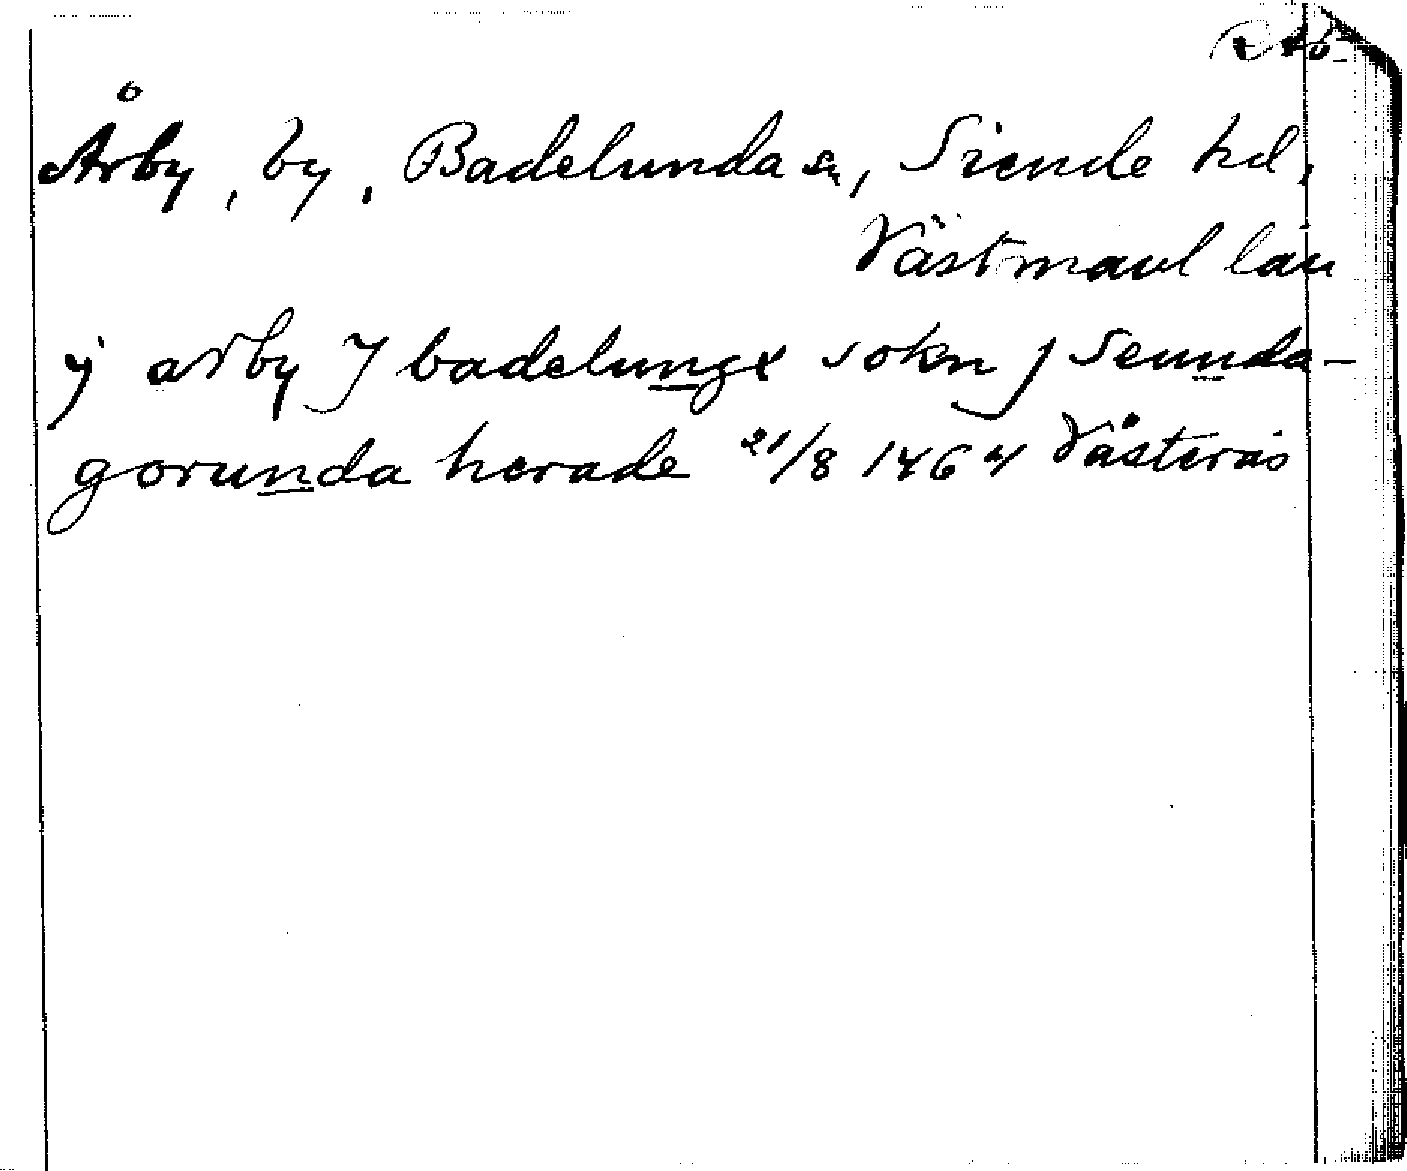 Årby, by, Badelunda sn, Siende hd,
Västmanl län
ÿ arby J badelungx sokn j Seunda-
gorunda herade 21/8 1464 Västerås